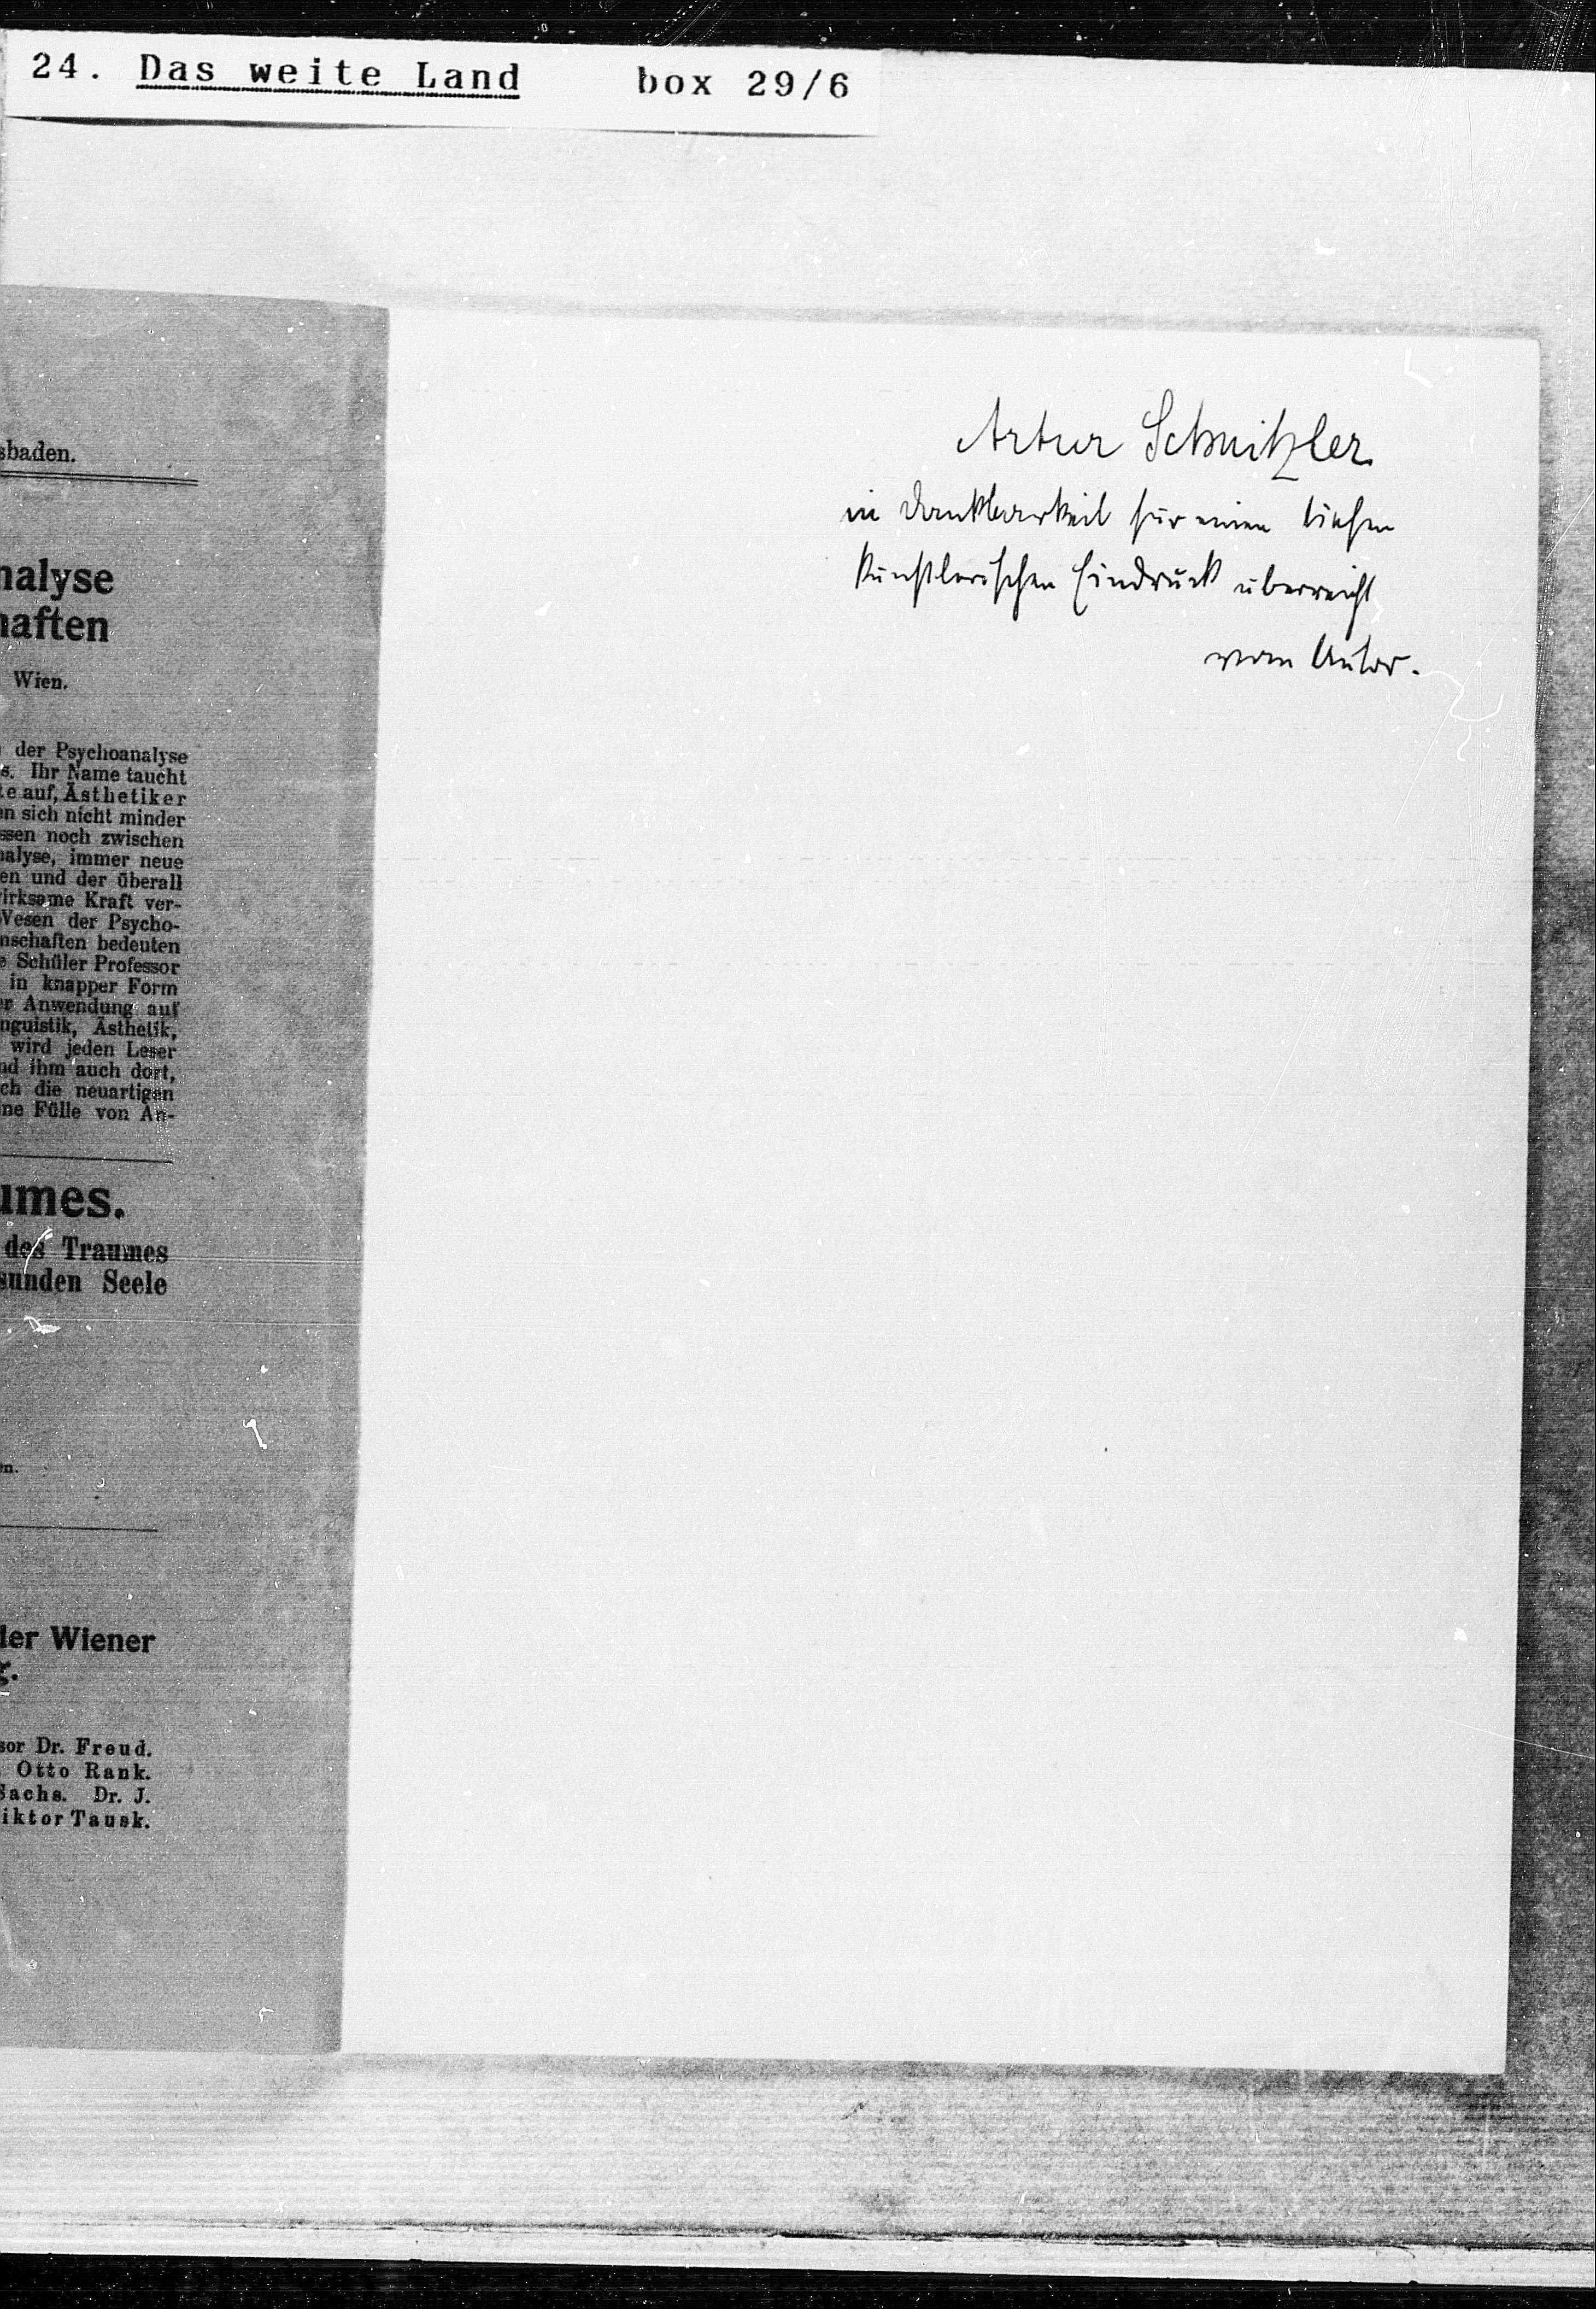 24. Das weite Land box 29/6
sbaden.
nalyse
haften
Wien.
der Psychoanalyse
s. Ihr Name taucht
te auf, Ästhetiker
en sich nicht minder
ssen noch zwischen
nalyse, immer neue
en und der überall
wirksame Kraft ver-
Wesen der Psycho-
nschaften bedeuten
e Schüler Professor
in knapper Form
er Anwendung auf
nguistik, Ästhetik,
wird jeden Leser
nd ihm auch dort,
ch die neuartigen
ne Fülle von An-
umes.
des Traumes
sunden Seele
en.
der Wiener
g.
sor Dr. Freud.
Otto Rank.
Sachs. Dr. J.
iktor Tausk.
Artur Schnitzler
in Dankbarkeit für einen tiefen
künstlerischen Eindruck überreicht
vom Autor.